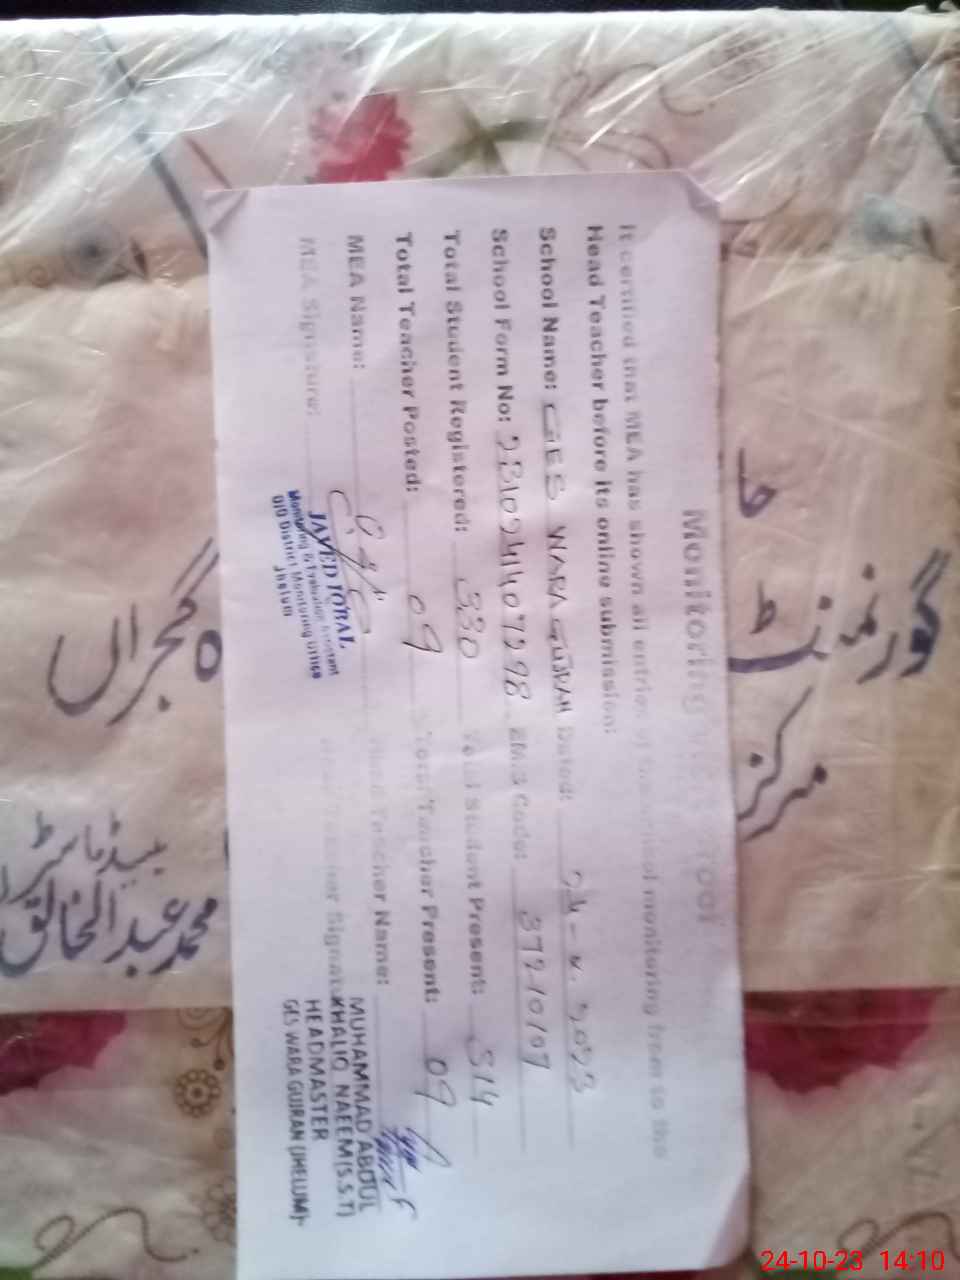 Monitoring
It certified that MEA has shown all entries of the school monitoring from to the
Head Teacher before its online submission:
School Name: GES WARA GUJRAN Dated: 2023
School Form No: EMIS Code: 37210107
Total Student Registered: 330 Total Student Present: 314
Total Teacher Posted: 09 Total Teacher Present: 09
MEA Name: Head Teacher Name:
MEA Signature: Head Teacher Signature
JAVED IQBAL
Monitoring & Evaluation Assistant
O/O District Monitoring Office
Jhelum
MUHAMMAD ABDUL
KHALIQ NAEEM (S.S.T)
HEADMASTER
GES WARA GUJRAN (JHELUM)
گورنمنٹ
گجراں
مرکز
ہیڈ ماسٹر
محمد عبدالخالق
24-10-23 14:10